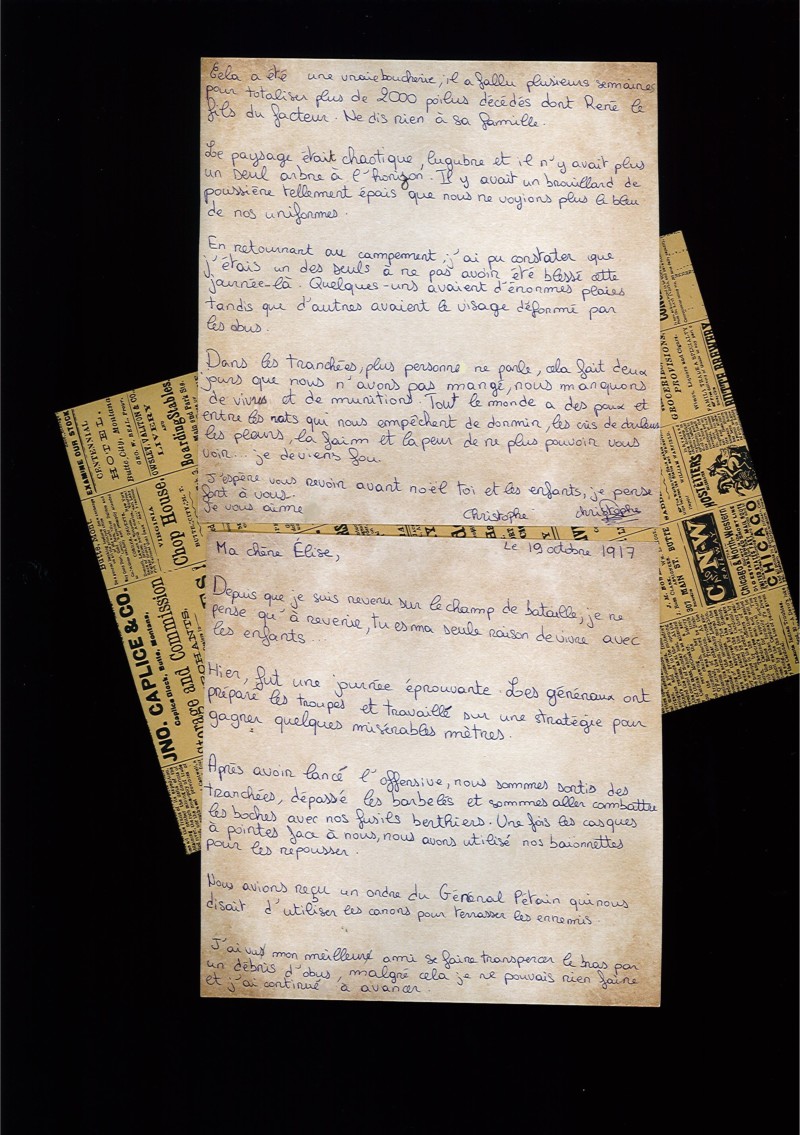 Cela a été une vraie boucherie, il a fallu plusieurs semaines
pour totaliser plus de 2000 poilus décédés dont René le
fils du facteur. Ne dis rien à sa famille.
Le paysage était chaotique, lugubre et il n'y avait plus
un seul arbre à l'horizon. Il y avait un brouillard de
poussière tellement épais que nous ne voyions plus le bleu
de nos uniformes.
En retournant au campement, j'ai pu constater que
j'étais un des seuls à ne pas avoir été blessé cette
journée-là. Quelques-uns avaient d'énormes plaies
tandis que d'autres avaient le visage déformé par
les obus.
Dans les tranchées, plus personne ne parle, cela fait deux
jours que nous n'avons pas mangé, nous manquons
de vivres et de munitions. Tout le monde a des poux et
entre les rats qui nous empêchent de dormir, les cris de douleurs
les pleurs, la faim et la peur de ne plus pouvoir vous
voir... je deviens fou.
J'espère vous revoir avant noël toi et les enfants, je pense
fort à vous.
Je vous aime
Christophe christophe
Ma chère Élise, Le 19 octobre 1917
Depuis que je suis revenu sur le champ de bataille, je ne
pense qu'à revenir, tu es ma seule raison de vivre avec
les enfants...
Hier, fut une journée éprouvante. Les généraux ont
préparé les troupes et travaillé sur une stratégie pour
gagner quelques misérables mètres.
Après avoir lancé l'offensive, nous sommes sortis des
tranchées, dépassé les barbelés et sommes aller combattre
les boches avec nos fusils berthiers. Une fois les casques
à pointes face à nous, nous avons utilisé nos baïonnettes
pour les repousser.
Nous avions reçu un ordre du Général Pétain qui nous
disait d'utiliser les canons pour terrasser les ennemis.
J'ai vus mon meilleure ami se faire transpercer le bras par
un débris d'obus, malgré cela je ne pouvais rien faire
et j'ai continué à avancer.
EXAMINE OUR STOCK
CENTENNIAL
HOTEL,
Butte City, Montana
LIVERY
Boarding Stables,
VIRGINIA
Chop House,
JNO. CAPLICE & CO.
Caplice Block, Butte, Montana,
Storage and Commission
GROCERIES,
PROVISIONS,
BUTTE BREWERY
HOSTELLIERS
C & N W
RAILWAY
Chicago & North-Western
CHICAGO
307 MAIN ST. BUTTE